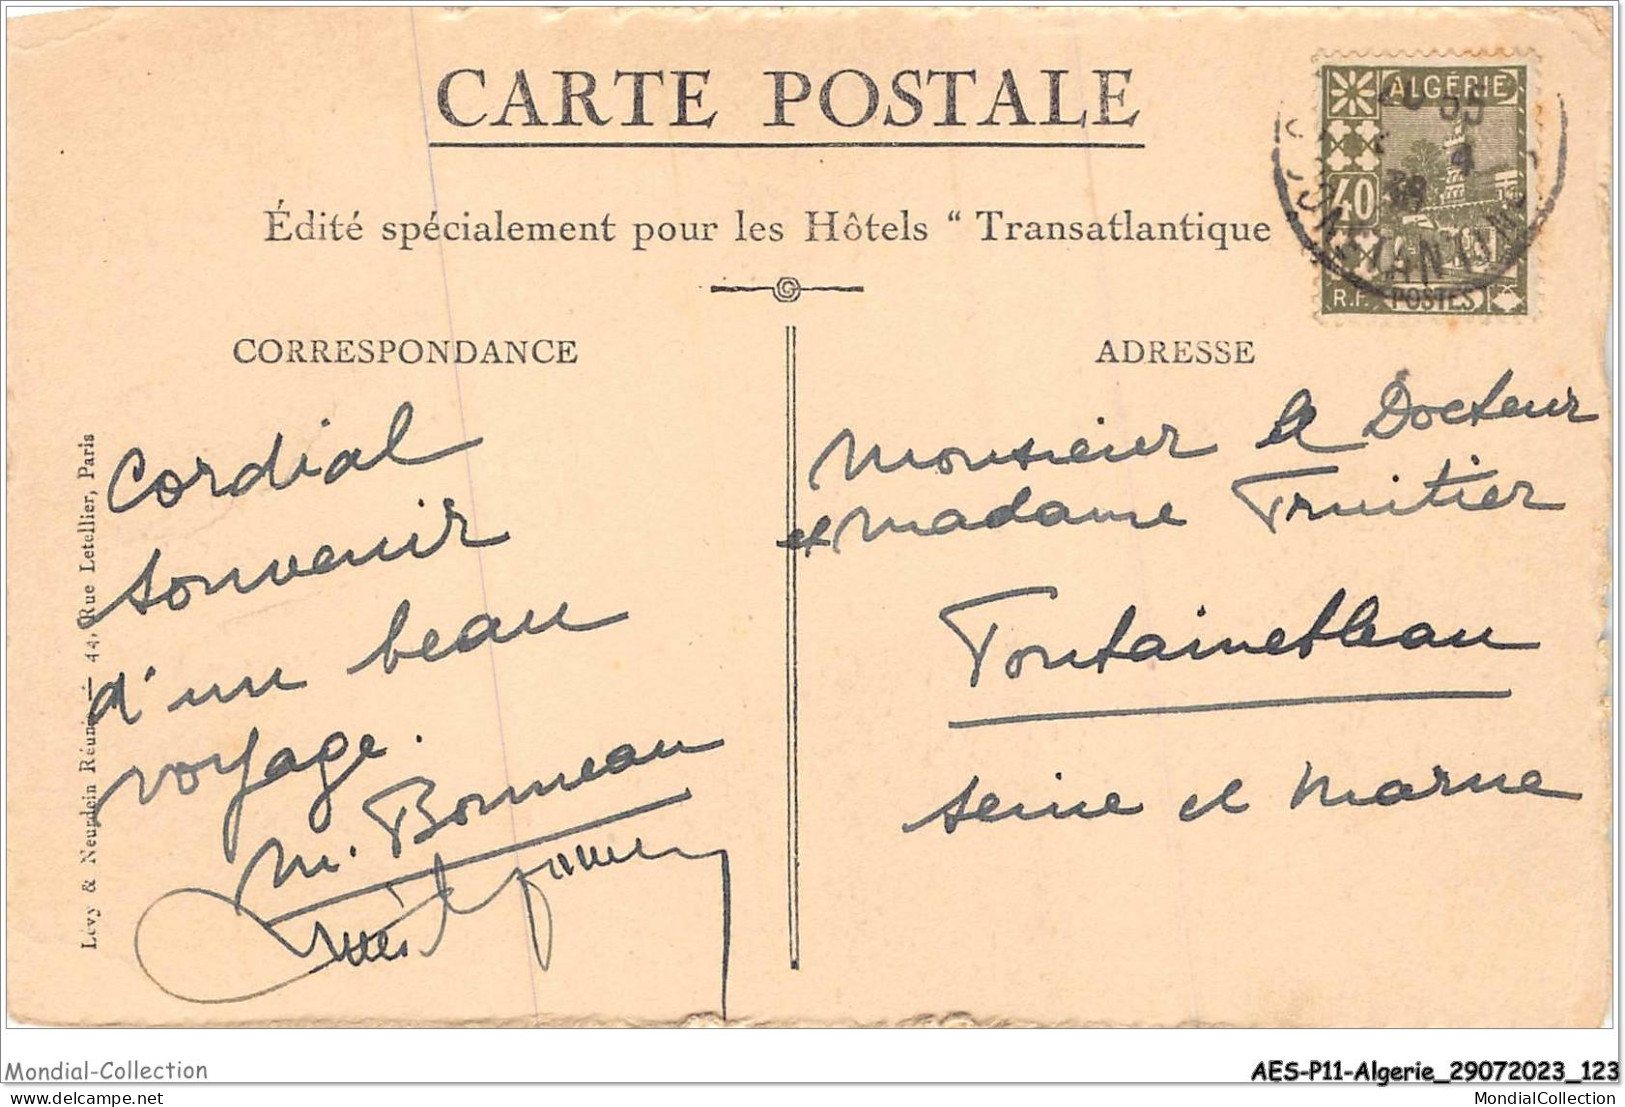 CARTE POSTALE
Édité spécialement pour les Hôtels “ Transatlantique
CORRESPONDANCE
ADRESSE
ALGÉRIE
40
R.F. POSTES
CONSTANTINE
Cordial
souvenir
d'un beau
voyage.
M. Bonneau
Monsieur le Docteur
et Madame Fruitier
Fontainebleau
Seine et Marne
Lévy & Neurdein Réunis — 44, Rue Letellier, Paris
Mondial-Collection
AES-P11-Algerie_29072023_123
MondialCollection